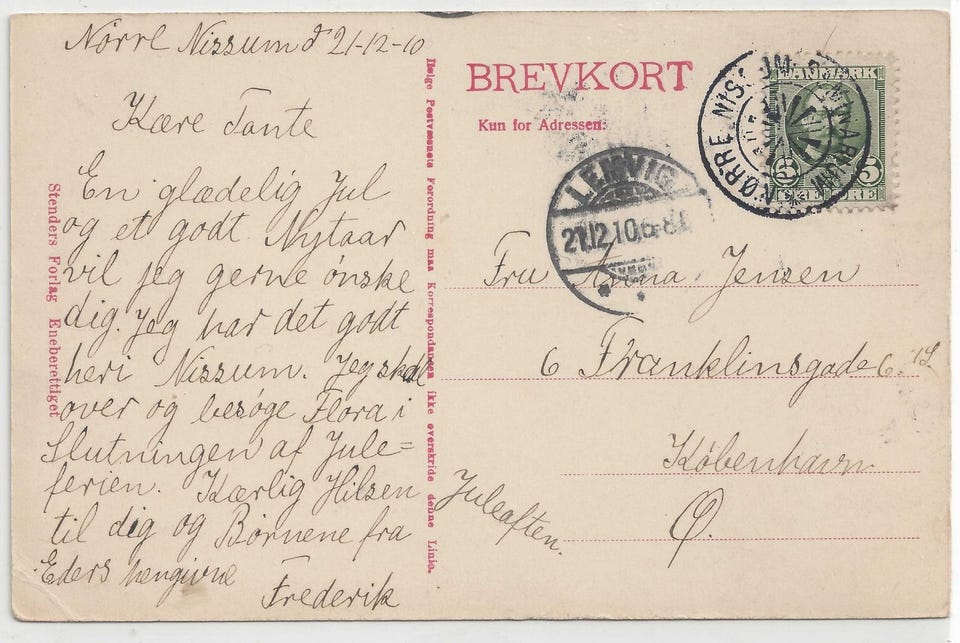 Nörre Nissum d 21-12-10
Kære Tante
En glædelig Jul
og et godt Nytaar
vil jeg gerne önske
dig. Jeg har det godt
her i Nissum. Jeg skal
over og besöge Flora i
Slutningen af Jule=
ferien. Kærlig Hilsen
til dig og Börnene fra
Eders hengivne
Frederik
Stenders Forlag Eneberettiget
Ifølge Postvæsnets Forordning maa Korrespondancen ikke overskride denne Linie.
BREVKORT
Kun for Adressen:
NØRRE NISSUM SEMINARIUM
DANMARK
5 5
ØRE
LEMVIG
21.12.10.6-8
Fru Anna Jensen
6 Franklinsgade 6.
København
Ø.
Juleaften.